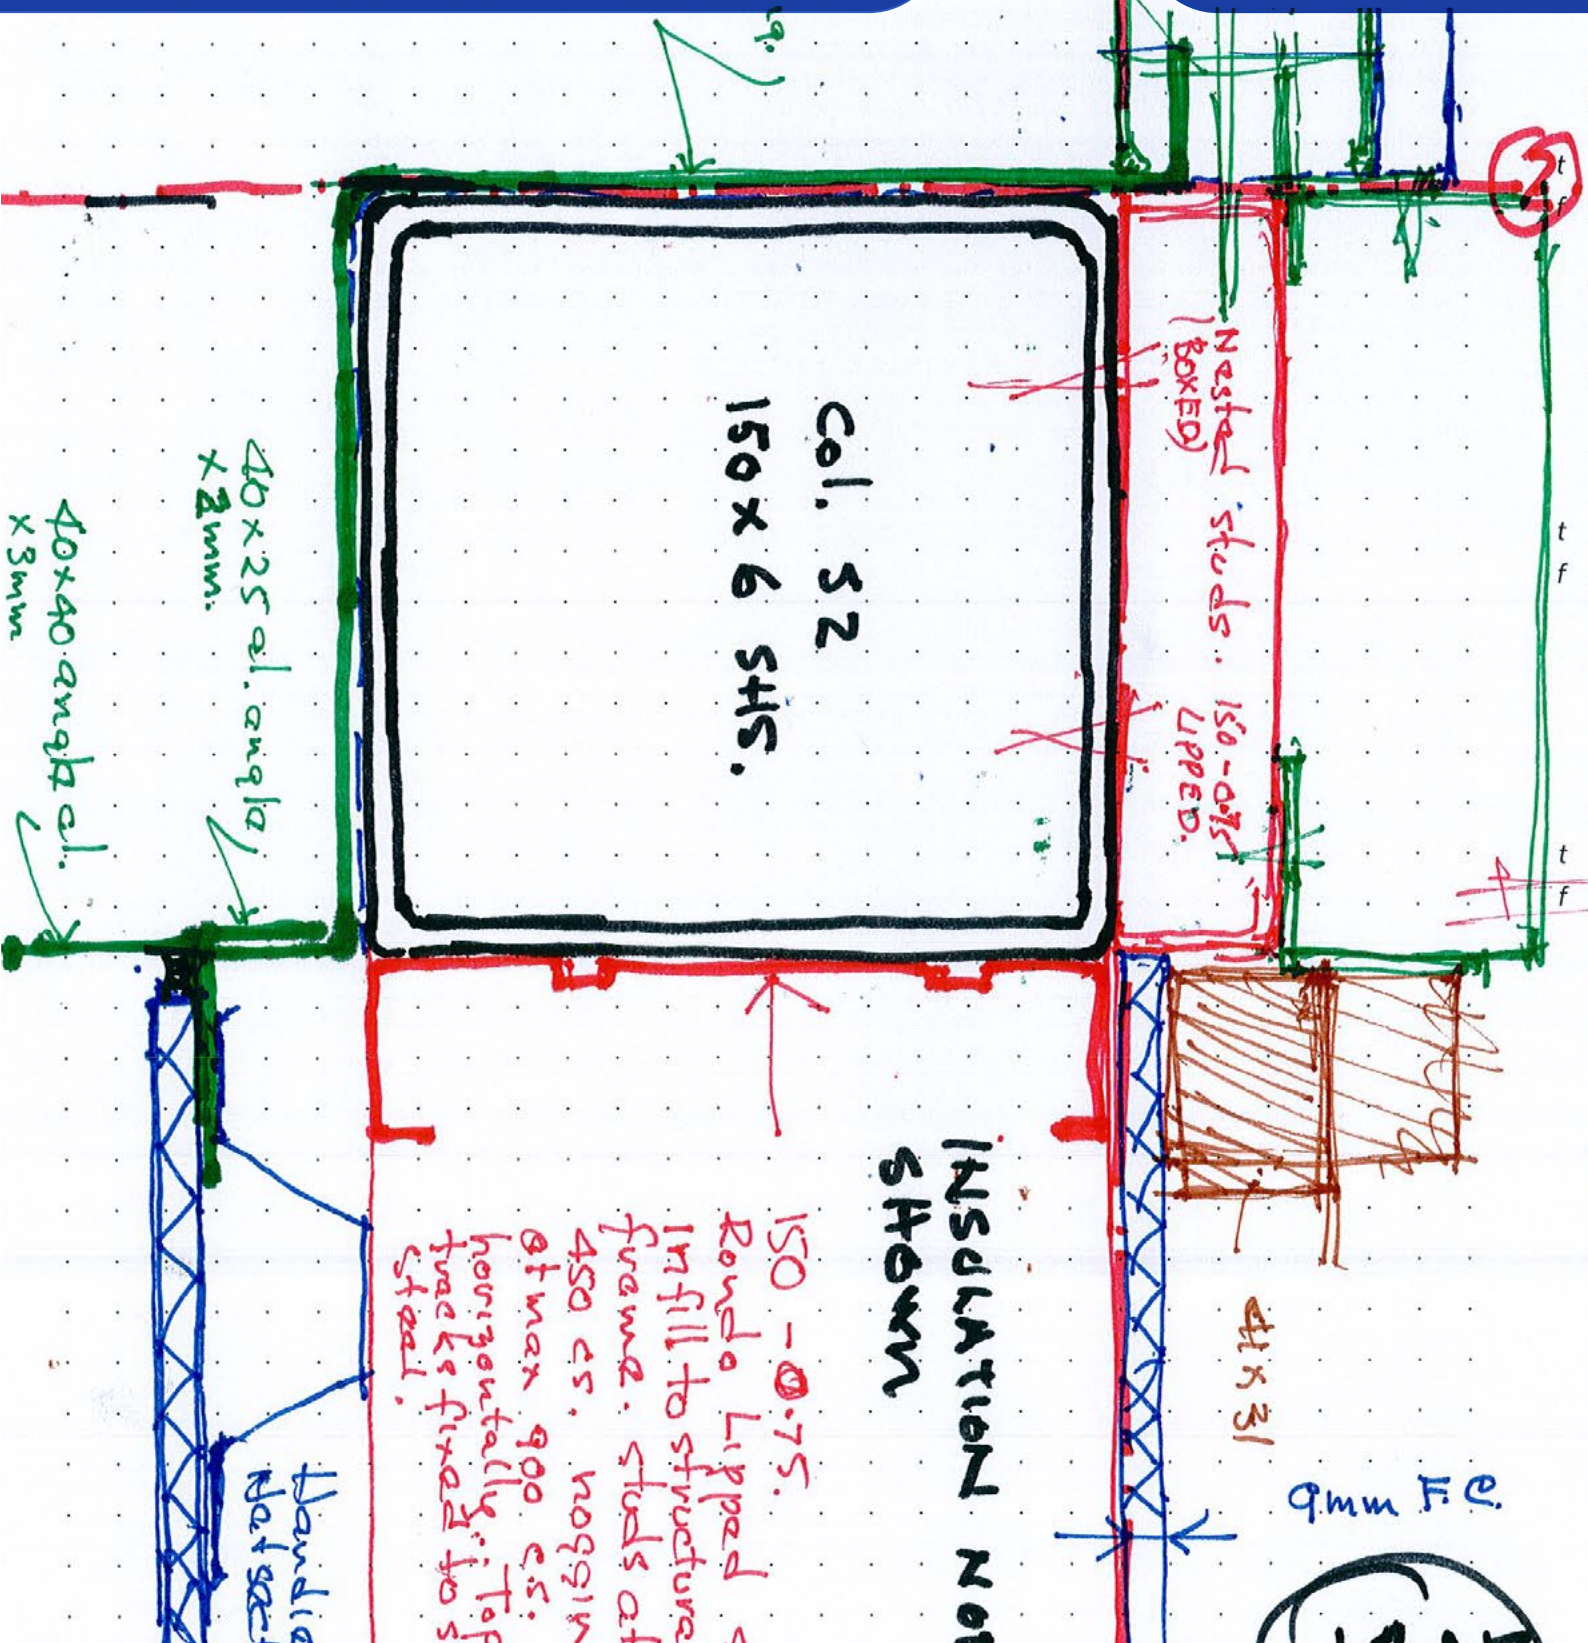 Col. S2
150 x 6 SHS.
Nested studs. 150-0.75
(BOXED) LIPPED.
40x25 al. angle
x 3mm.
40x40 angle al.
x 3mm
INSULATION NO
SHOWN
150 - 0.75.
Rondo Lipped
Infill to structure
frame. studs at
450 cs. noggin
at max 900 c.s.
horizontally. Top
tracks fixed to s
steel.
41 x 31
9mm F.C.
t
f
t
f
t
f